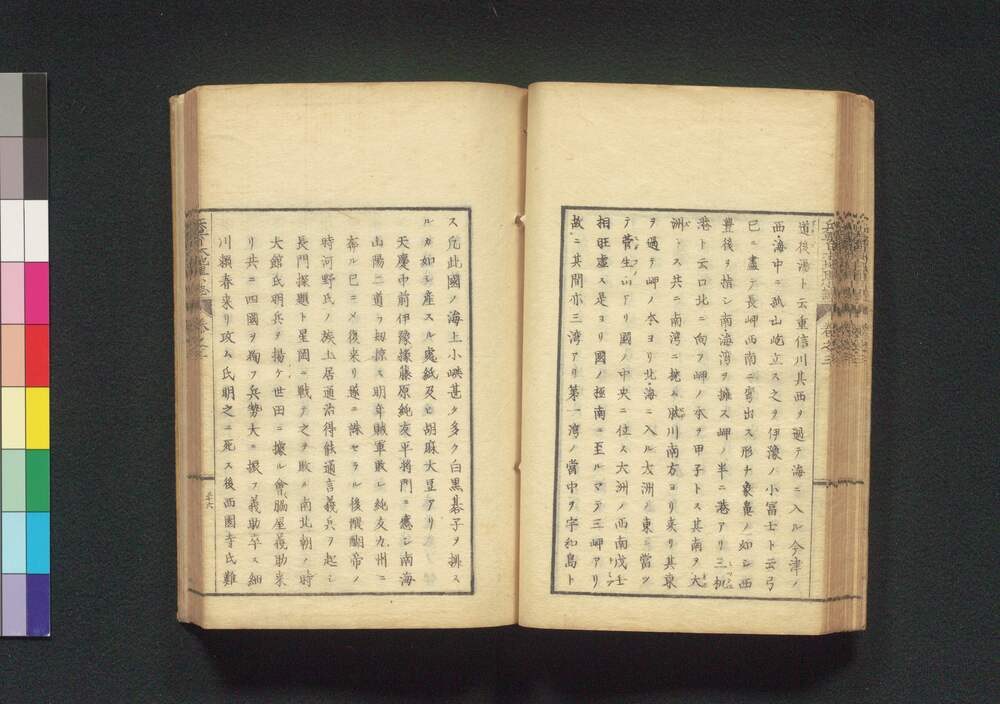 道後湯ト云重信川其西ヲ過テ海ニ入ル今津ノ
西海中ニ孤山屹立ス之ヲ伊豫ノ小冨士ト云弓
已ニ盡テ長岬西南ニ弯出ス形チ象鼻ノ如シ西
豊後ヲ指シ南海湾ヲ擁ス岬ノ半ニ港アリ三机
港ト云口北ニ向フ岬ノ本ヲ甲子トス其南ヲ大
洲トス共ニ南湾ニ挽ム肱川南方ヨリ来リ其東
ヲ過テ岬ノ本ヨリ北海ニ入ル大洲ノ東ニ當ツ
テ菅生山アリ國ノ中央ニ位ス大洲ノ西南戊士
相旺虚ス是ヨリ國ノ極南ニ至ルマテ三岬アリ
故ニ其間亦三湾アリ第一湾ノ當中ヲ宇和島ト
ス凢此國ノ海上小嶼甚タ多ク白黒碁子ヲ排ス
ルカ如シ産スル處紙及ヒ胡麻大豆アリ
天慶中前伊豫掾藤原純友平将門ニ應シ南海
山陽二道ヲ刧掠ス明年賊軍敗レ純友九州ニ
奔ル已ニメ復来リ遂ニ誅セラル後醍醐帝ノ
時河野氏ノ族土居通治得能通言義兵ヲ起シ
長門探題ト星岡ニ戦テ之ヲ敗ル南北朝ノ時
大舘氏明兵ヲ揚ケ世田ニ據ル會脇屋義助来
リ共ニ四國ヲ徇フ兵勢大ニ振フ義助卒ス細
川頼春来リ攻ム氏明之ニ死ス後西園寺氏難